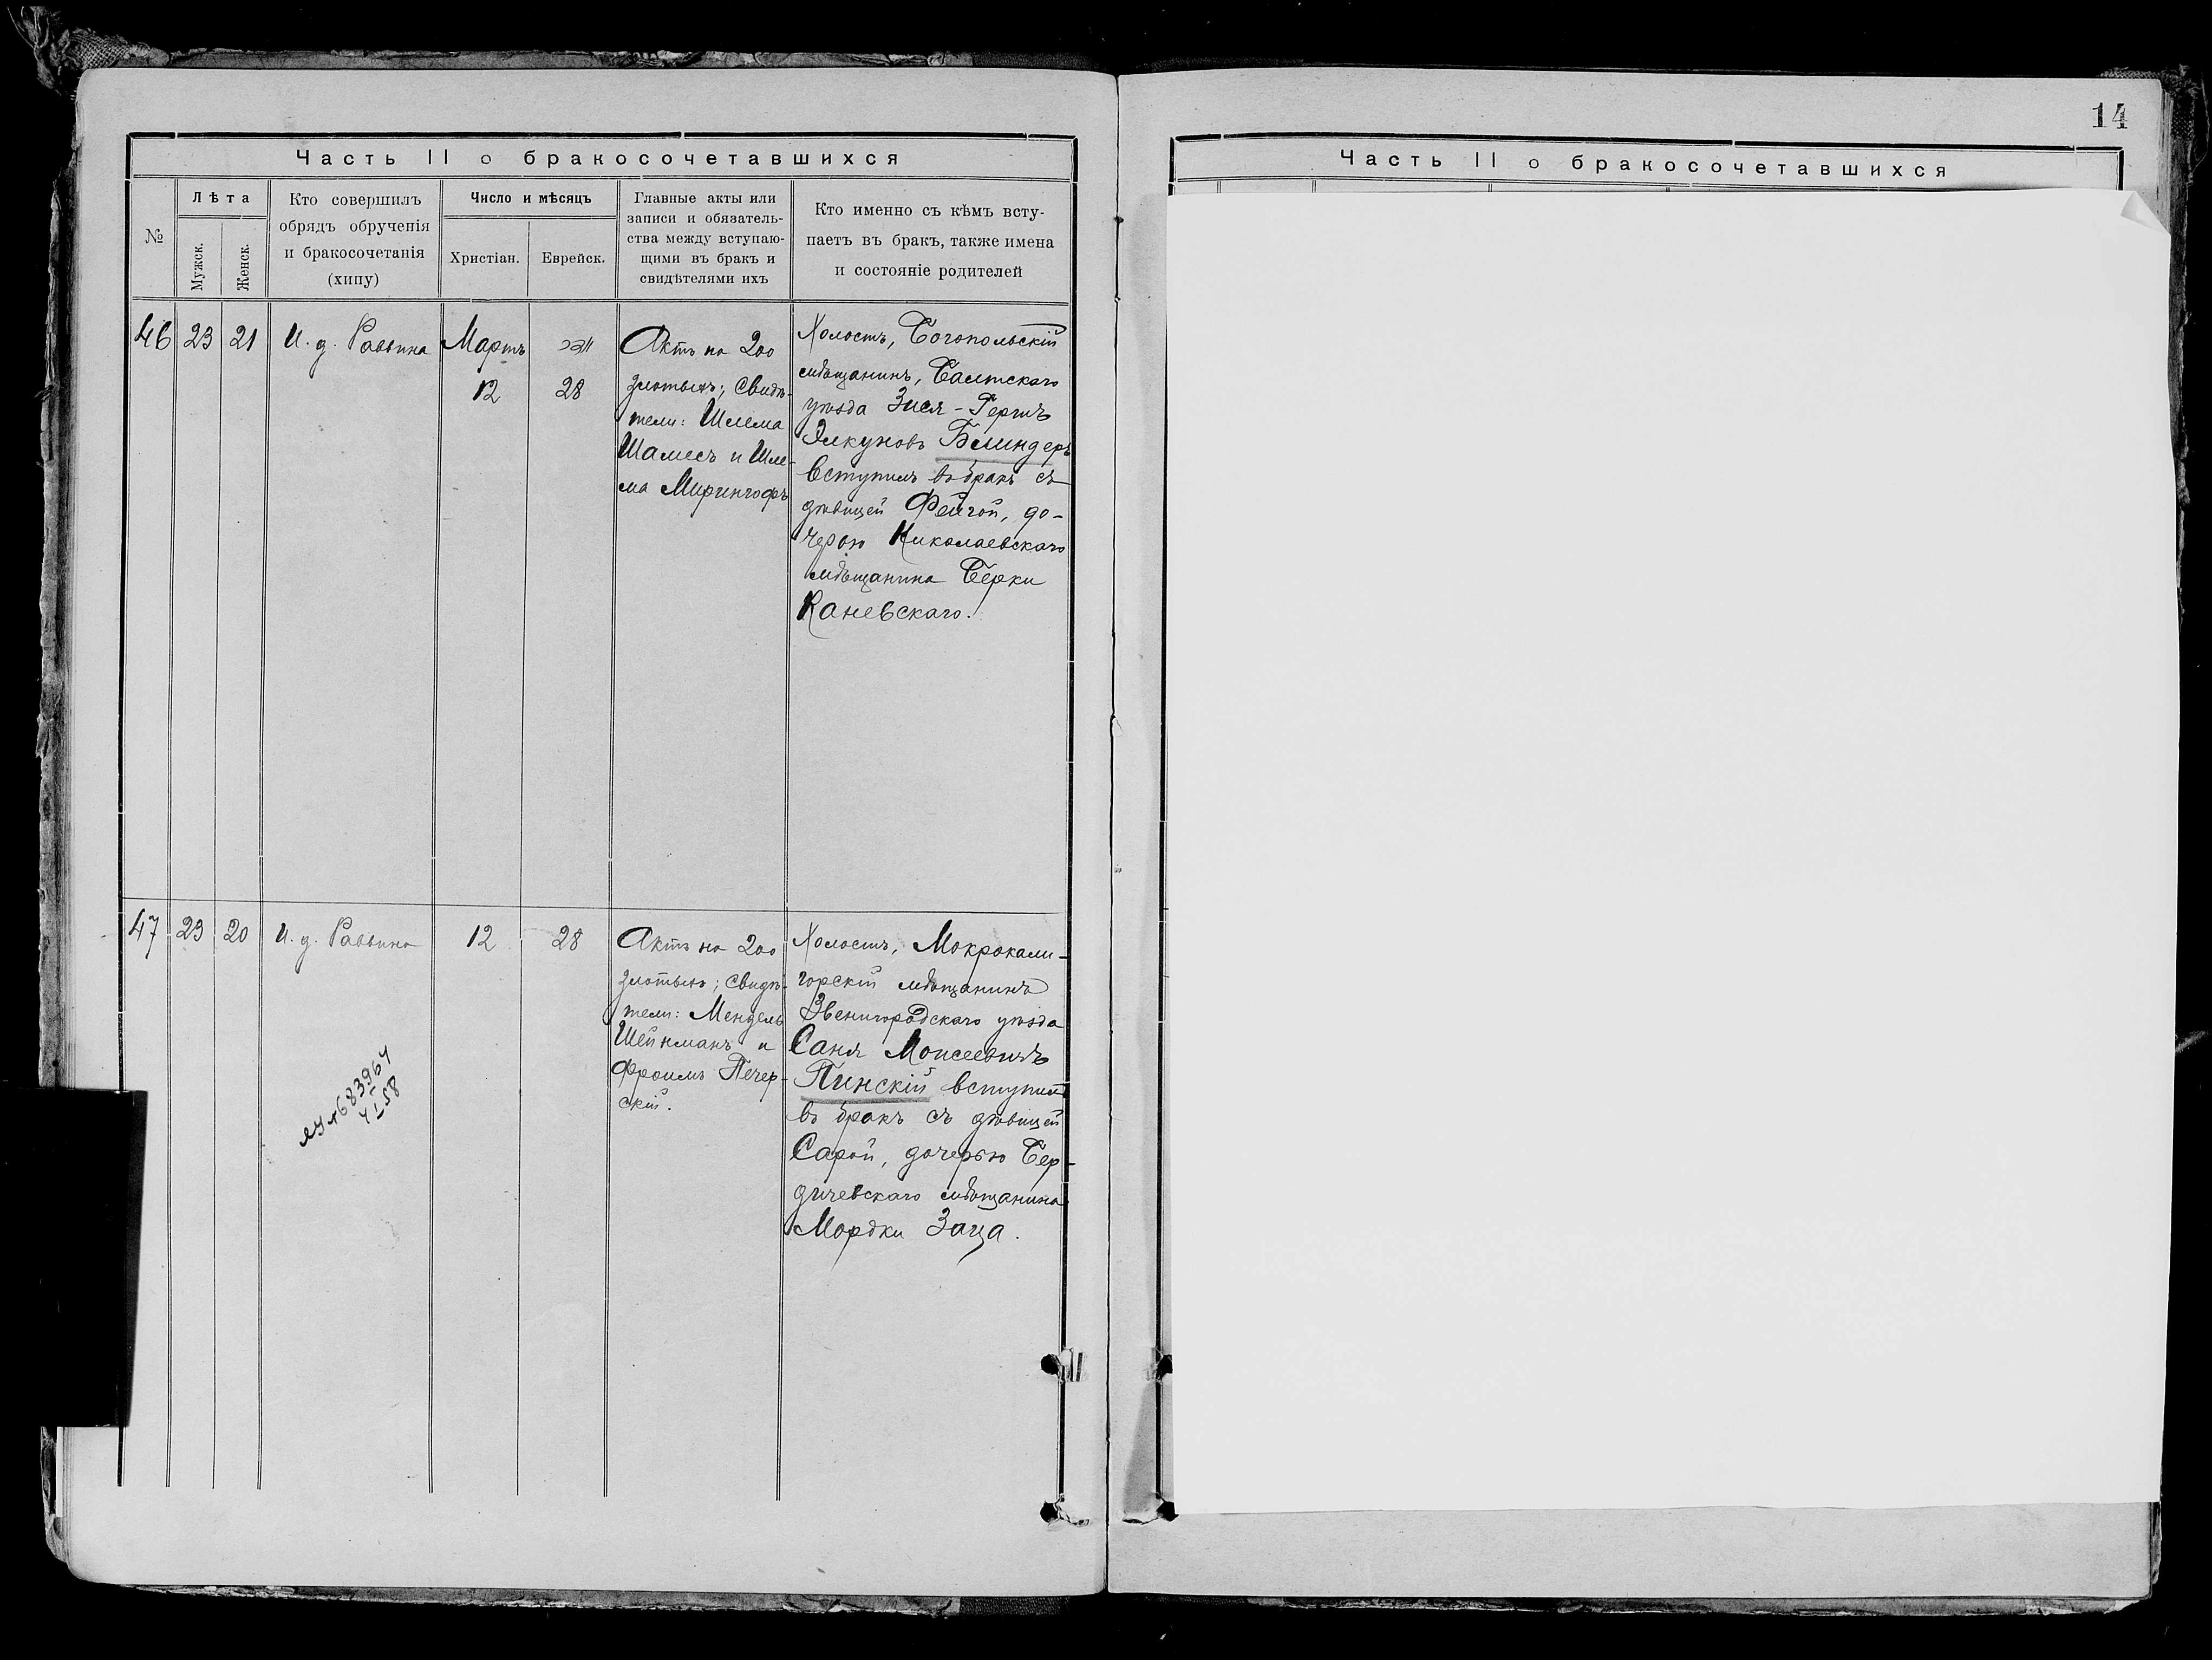 14
Часть II о бракосочетавшихся
№
Лѣта
Мужск.
Женск.
Кто совершилъ
обрядъ обрученія
и бракосочетанія
(хипу)
Число и мѣсяцъ
Христіан.
Еврейск.
Главные акты или
записи и обязатель-
ства между вступаю-
щими въ бракъ и
свидѣтелями ихъ
Кто именно съ кѣмъ всту-
паетъ въ бракъ, также имена
и состояніе родителей
46
23
21
И. д. Раввина
Мартъ
12
28
Актъ на 200
злотыхъ; свидѣ-
тели: Шлема
Шамесъ и Шле-
ма Мирингофъ
Холостъ, Богопольскій
мѣщанинъ, Балтскаго
уѣзда Зися-Гершъ
Элкуновъ Блиндеръ
вступилъ въ бракъ съ
дѣвицей Фейгой, до-
черью Николаевскаго
мѣщанина Берки
Каневскаго.
47
23
20
И. д. Раввина
12
28
Актъ на 200
злотыхъ; свидѣ-
тели: Мендель
Шейнманъ и
Фроимъ Печер-
скій.
Холостъ, Мокрокали-
горскій мѣщанинъ
Звенигородскаго уѣзда
Саня Моисеевичъ
Пинскій вступилъ
въ бракъ съ дѣвицей
Сарой, дочерью Бер-
дичевскаго мѣщанина
Мордки Заца.
683964
58
Часть II о бракосочетавшихся